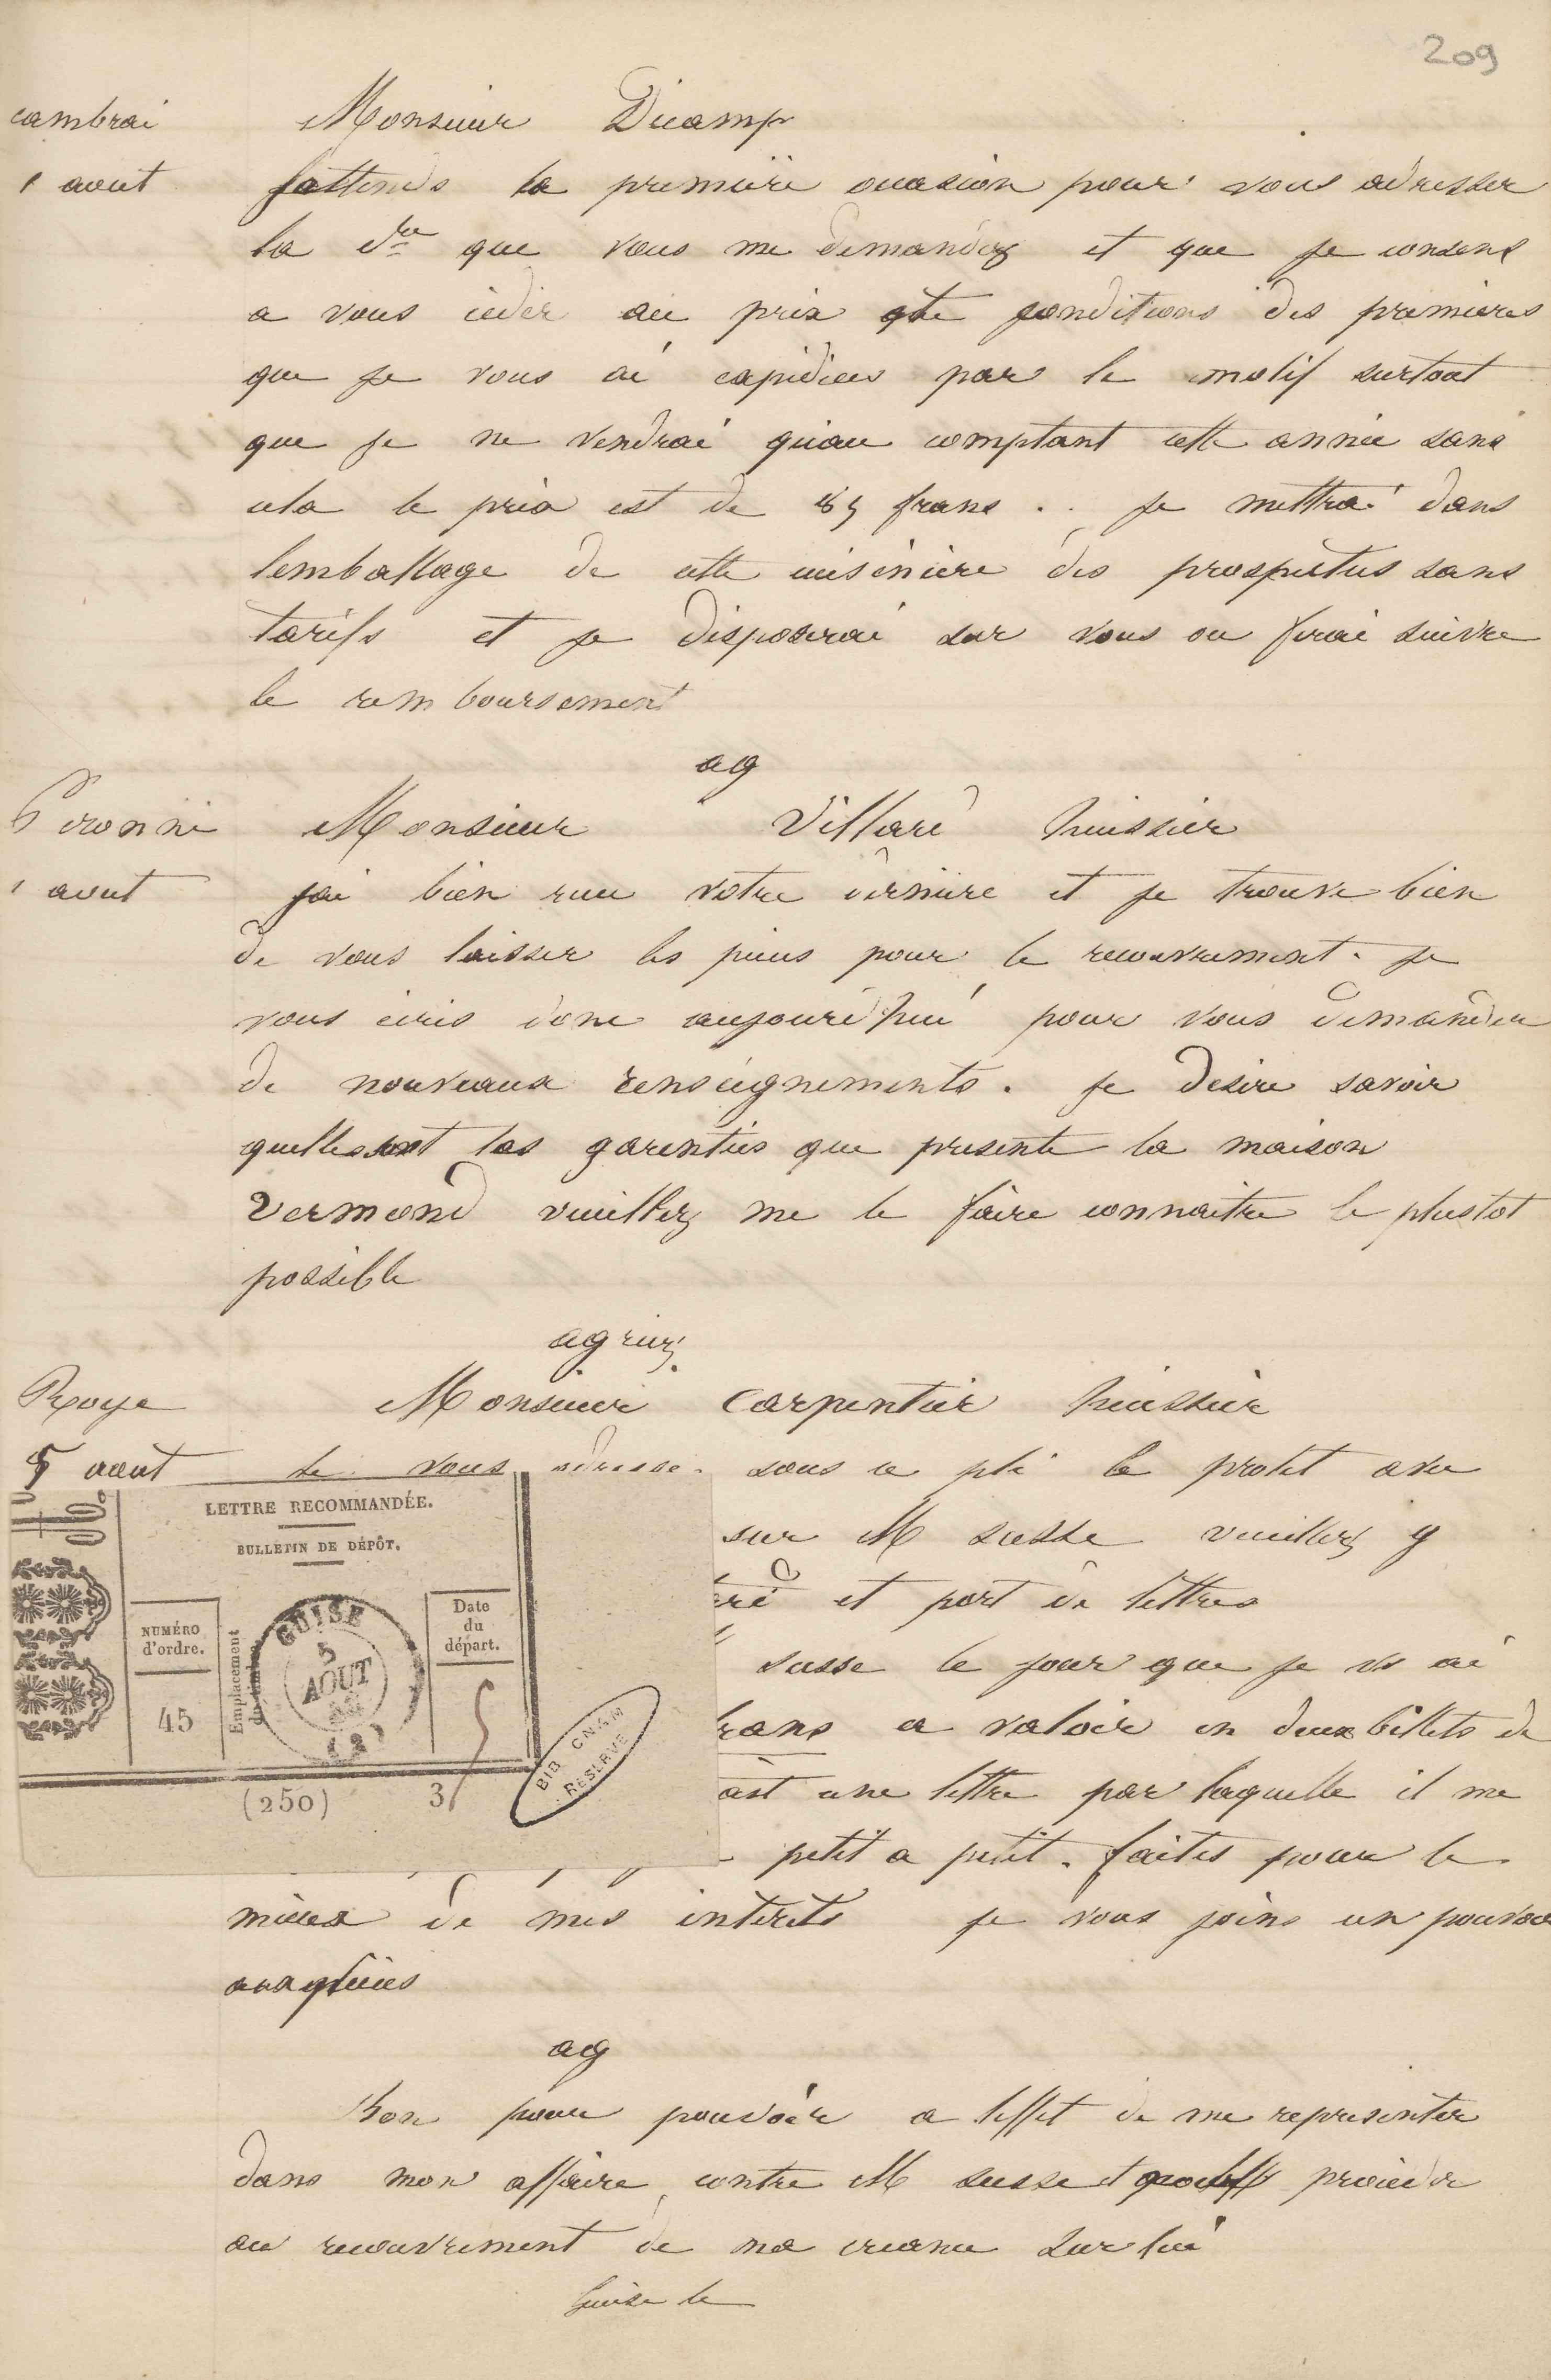 209
cambrai Monsieur Ducamp
1 aout j'attends la première occasion pour vous adresser
la dre que vous me demandez et que je consens
a vous céder au prix et conditions des premières
que je vous ai expédiées par le motif surtout
que je ne vendrai qu'au comptant cette année sans
cela le prix est de 85 frans . . je mettrai dans
lemballage de cette cuisinière des prospectus sans
tarifs et je disposerai sur vous ou ferai suivre
le remboursement
ag
Peronne Monsieur Villaré huissier
1 aout jai bien recu votre dernière et je trouve bien
de vous laisser les pieces pour le recouvrement. je
vous écris donc aujourd'hui pour vous demander
de nouveaux renseignements. je desire savoir
quelles sont les garenties que presente la maison
Vermond veuillez me le faire connaitre le plustot
possible
agréez
Roye Monsieur Carpentier huissier
5 aout Je vous adresse sous ce pli le protet avec
LETTRE RECOMMANDÉE.
BULLETIN DE DÉPÔT.
NUMÉRO d'ordre.
45
Emplacement du timbre
GUISE
5
AOUT
(2)
Date du départ.
5
(250) 3
BIB CNAM
RESERVE
sur M susse veuillez y
et port de lettres
susse le jour que je vs ai
rans a valoir en deux billets de
une lettre par laquelle il me
petit a petit. faites pour le
mieux de mes intérets je vous joins un pouvoir
ag
Bon pour pouvoir a leffet de me representer
dans mon affaire contre M susse et procéder
au recouvrement de ma creance sur lui
Guise le